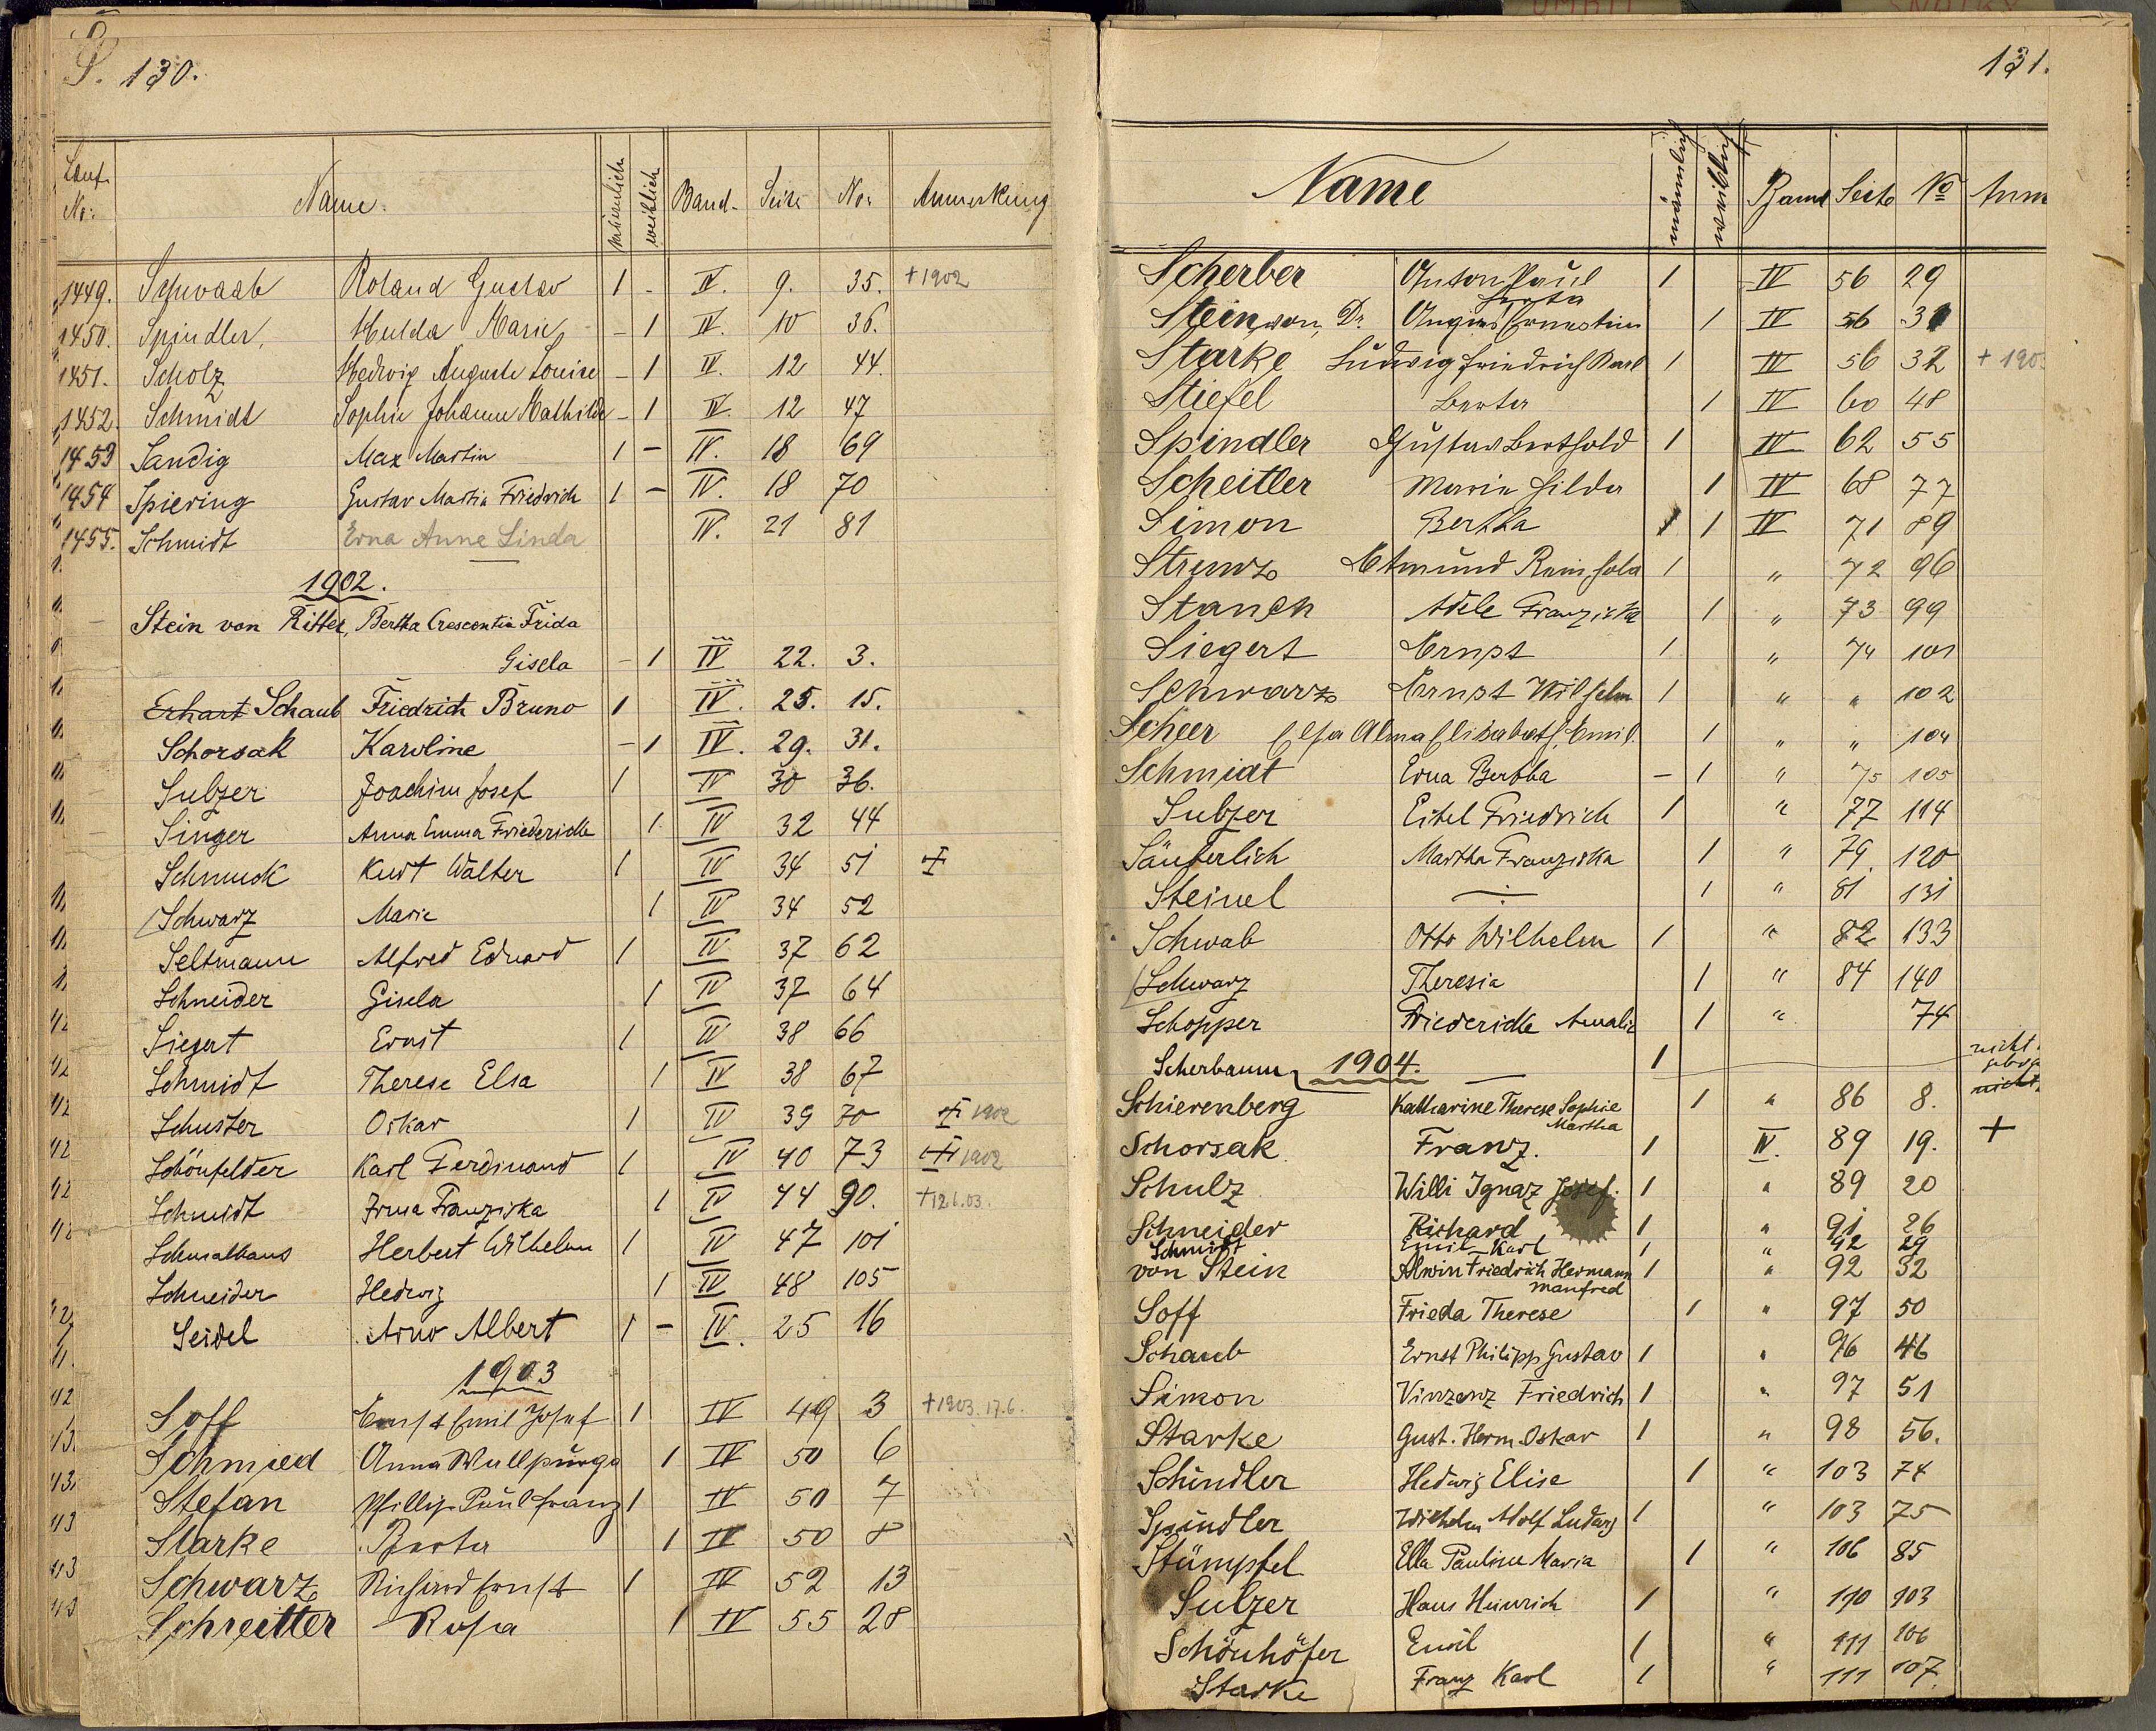 S. 130.
Lauf. No: Name. männlich weiblich Band. Seite No: Anmerkung
1449. Schwaab Roland Gustav 1 - IV. 9. 35. +1902
1450. Spindler, Hulda Marie - 1 IV. 10 36.
1451. Scholz Hedwig Auguste Louise - 1 IV. 12 44.
1452. Schmidt Sophie Johanne Mathilde - 1 IV. 12 47
1453 Sandig Max Martin 1 - IV. 18 69
1454 Spiering Gustav Martin Friedrich 1 - IV. 18 70
1455. Schmidt Erna Anne Linda IV. 21 81
1902.
Stein von Ritter, Bertha Crescentia Frida
Gisela - 1 IV 22. 3.
Erhart Schaub Friedrich Bruno 1 IV. 25. 15.
Schorsak Karoline - 1 IV. 29. 31.
Sulzer Joachim Josef 1 IV 30 36.
Singer Anna Emma Friedericke 1 IV 32 44
Schmuck Kurt Walter 1 IV 34 51 +
Schwarz Marie 1 IV 34 52
Seltmann Alfred Eduard 1 IV 37 62
Schneider Gisela 1 IV 37 64
Siegert Ernst 1 IV 38 66
Schmidt Therese Elsa 1 IV 38 67
Schuster Oskar 1 IV 39 70 + 1902
Schönfelder Karl Ferdinand 1 IV 40 73 + 1902
Schmidt Irma Franziska 1 IV 44 90. +12.6.03.
Schmalhaus Herbert Wilhelm 1 IV 47 101
Schneider Hedwig 1 IV 48 105
Seidel Arno Albert 1 - IV. 25 16
1903
Soff Ernst Emil Josef 1 IV 49 3 +1903. 17.6.
Schmied Anna Wallpurga 1 IV 50 6
Stefan Phillip Paul Franz 1 IV 50 7
Starke Berta 1 IV 50 8
Schwarz Richard Ernst 1 IV 52 13
Schreitter Rosa 1 IV 55 28
131.
Name männlich weiblich Band Seite No Anm
Scherber Anton Paul 1 IV 56 29
Berta
Stein, von, Dr. Ernestine 1 IV 56 31
Starke Ludwig Friedrich Karl 1 IV 56 32 + 190
Stiefel Berta 1 IV 60 48
Spindler Gustav Berthold 1 IV 62 55
Scheitler Maria Hilda 1 IV 68 77
Simon Bertha 1 1 IV 71 89
Strunz Edmund Reinhold 1 " 72 96
Stanek Adele Franziska 1 " 73 99
Siegert Ernst 1 " 74 101
Schwarz Ernst Wilhelm 1 " " 102
Scheer Elsa Alma Elisabeth Emil. 1 " " 104
Schmidt Erna Bertha - 1 " 75 105
Sulzer Eitel Friedrich 1 " 77 114
Säuberlich Martha Franziska 1 " 79 120
Steinel 1 " 81 131
Schwab Otto Wilhelm 1 " 82 133
Schwarz Theresia 1 " 84 140
Schopper Friedericke Amalie 1 " 74
Scherbaum 1904. 1 nicht
Schierenberg Katharine Therese Sophie 1 " 86 8. nicht.
Martha
Schorsak Franz. 1 IV. 89 19. +
Schulz Willi Ignaz Josef. 1 " 89 20
Schneider Richard 1 " 91 26
Schmidt Emil Karl 1 " 92 29
von Stein Alwin Friedrich Hermann 1 " 92 32
Manfred
Soff Frieda Therese 1 " 97 50
Schaub Ernst Philipp Gustav 1 " 96 46
Simon Vinzenz Friedrich 1 " 97 51
Starke Gust. Herm. Oskar 1 " 98 56.
Schindler Hedwig Elise 1 " 103 74
Spindler Wilhelm Adolf Ludwig 1 " 103 75
Stümpfel Ella Pauline Maria 1 " 106 85
Sulzer Hans Heinrich 1 " 110 103
Schönhöfer Emil 1 " 111 106
Starke Franz Karl 1 " 111 107.